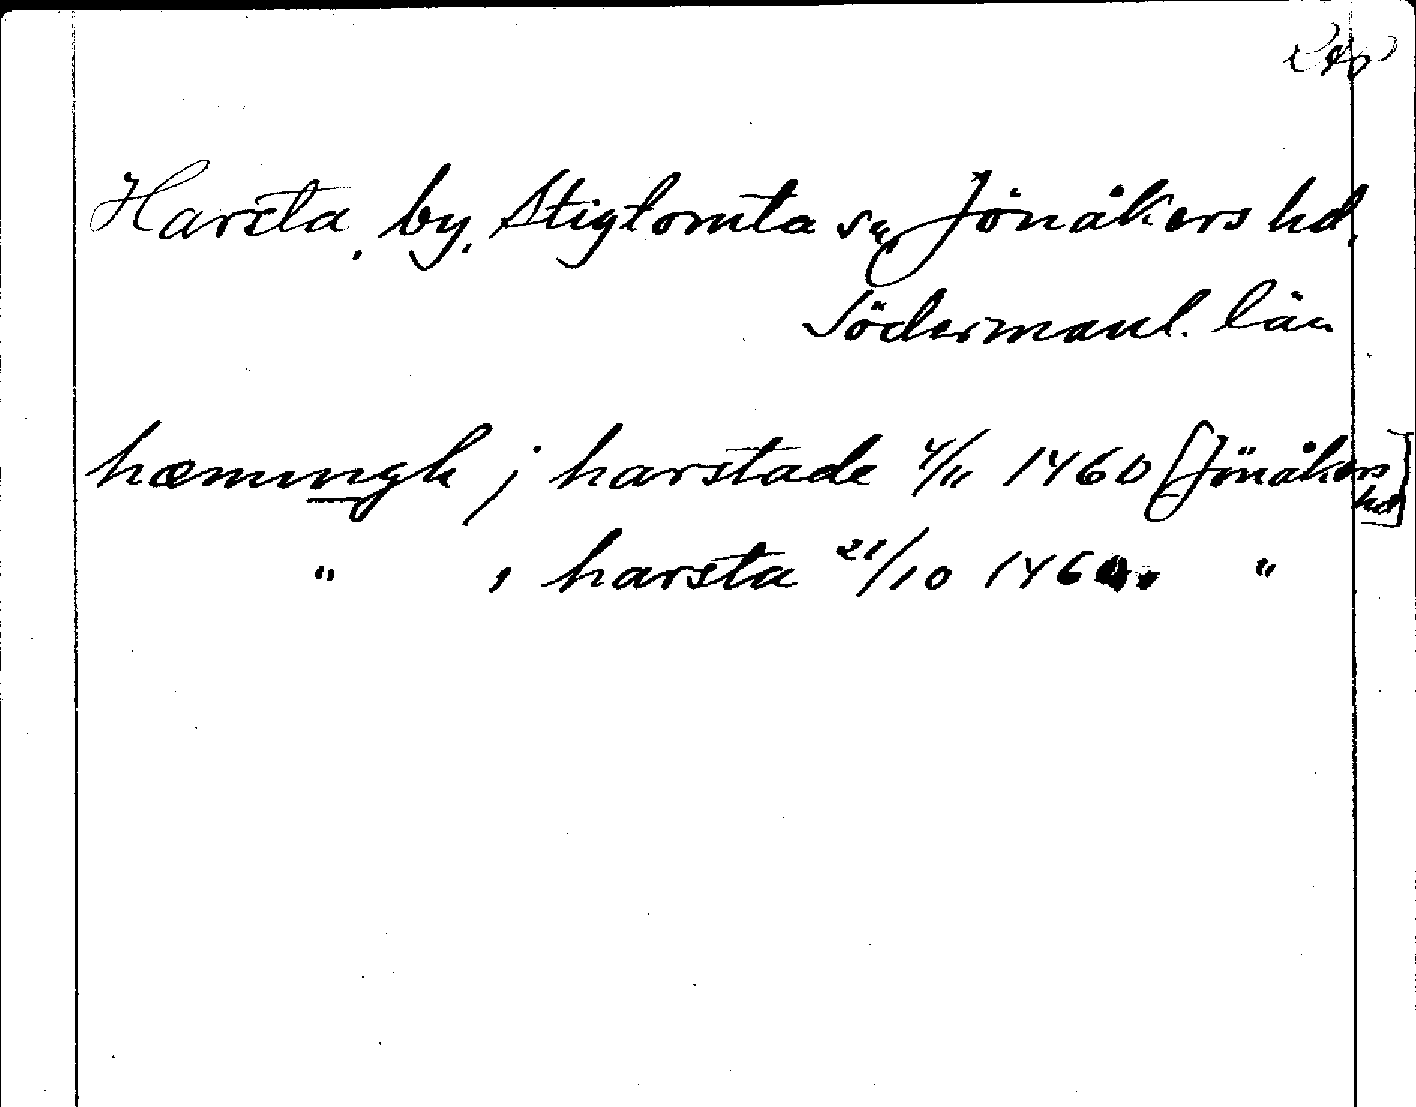 Harsta, by, Stigtomta sn, Jönåkers hd,
Södermanl. län
hæmingh j harstade 4/11 1460 [Jönåkers hd]
" , harsta 21/10 146 "